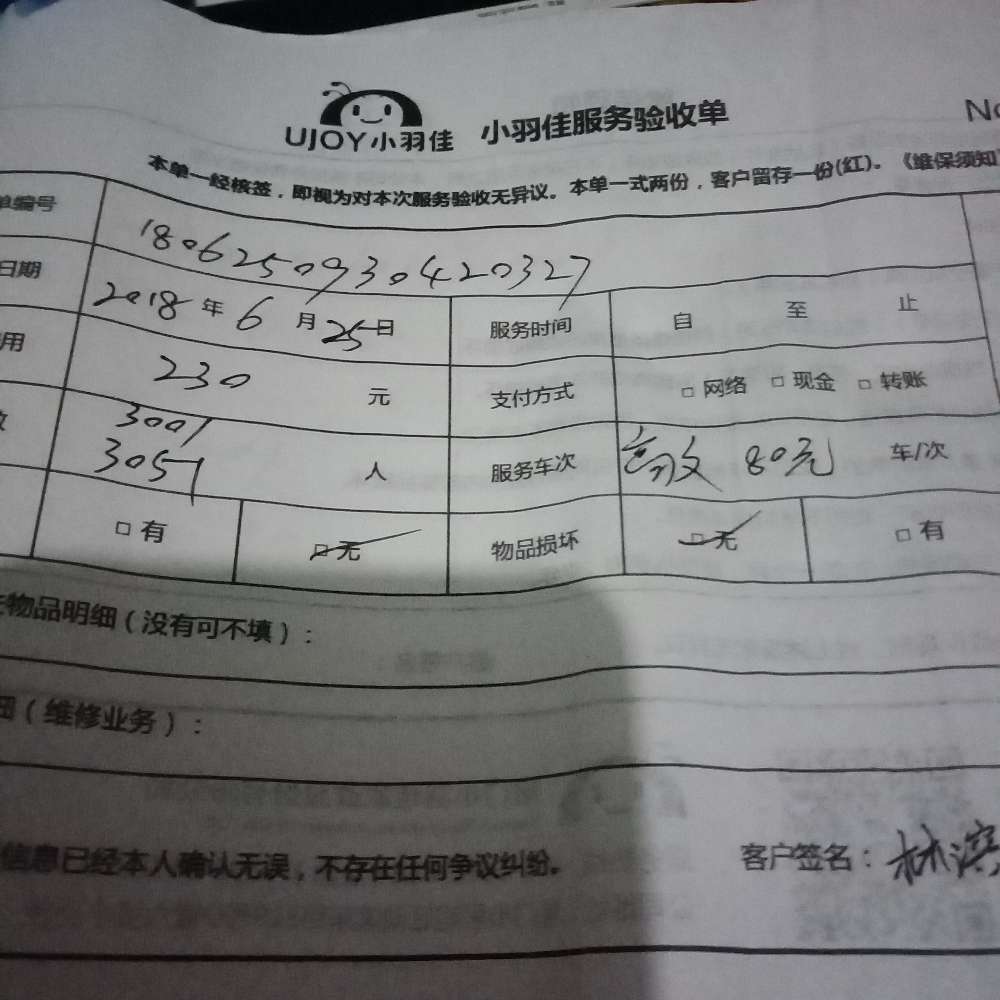 UJOY小羽佳 小羽佳服务验收单 No
本单一经核签，即视为对本次服务验收无异议。本单一式两份，客户留存一份(红)。《维保须知》
单编号 1806250930420327
日期 2018 年 6 月 25 日 服务时间 自 至 止
用 230 元 支付方式 □ 网络 □ 现金 □ 转账
数 3001
3051 人 服务车次 高敏 80元 车/次
□ 有 □ 无 物品损坏 □ 无 □ 有
物品明细（没有可不填）：
细（维修业务）：
信息已经本人确认无误，不存在任何争议纠纷。 客户签名： 林滨